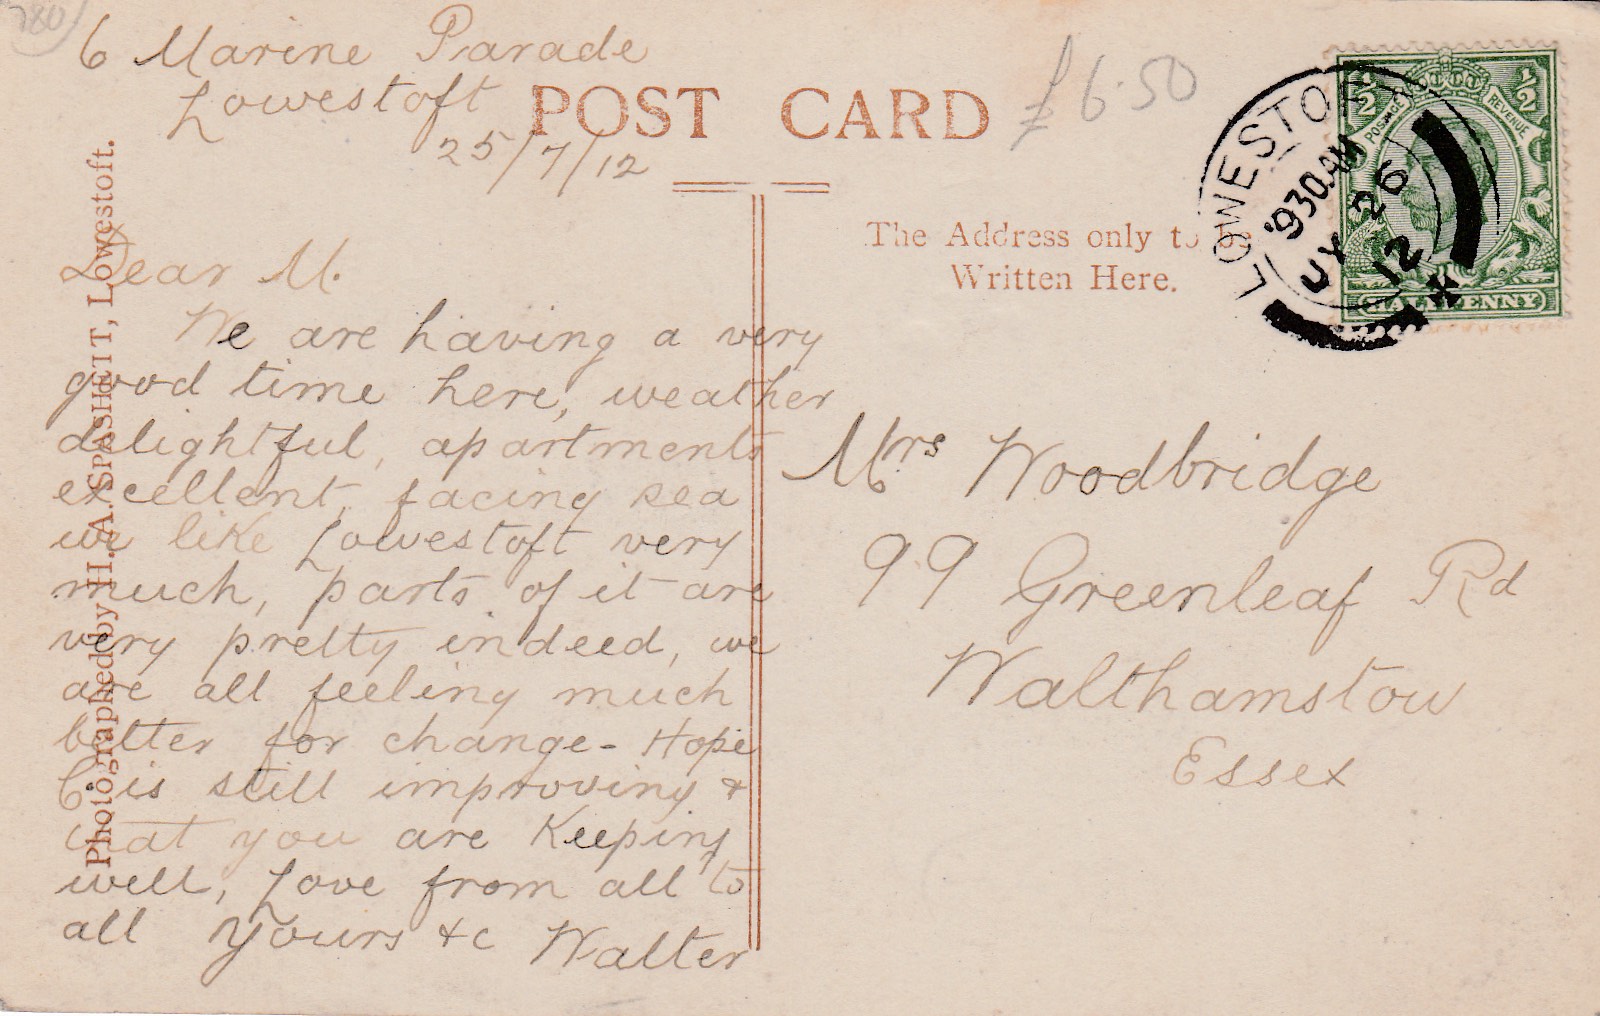 780
6 Marine Parade
Lowestoft
25/7/12
POST CARD
£6.50
The Address only to be
Written Here.
LOWESTOFT
9 30 AM
JY 26
12
½ ½
POSTAGE REVENUE
HALFPENNY
Photographed by H. A. SPASHETT, Lowestoft.
Dear M.
We are having a very
good time here, weather
delightful, apartments
excellent, facing sea
we like Lowestoft very
much, parts of it are
very pretty indeed, we
are all feeling much
better for change - Hope
C. is still improving &
that you are Keeping
well, Love from all to
all Yours &c Walter
Mrs Woodbridge
99 Greenleaf Rd
Walthamstow
Essex